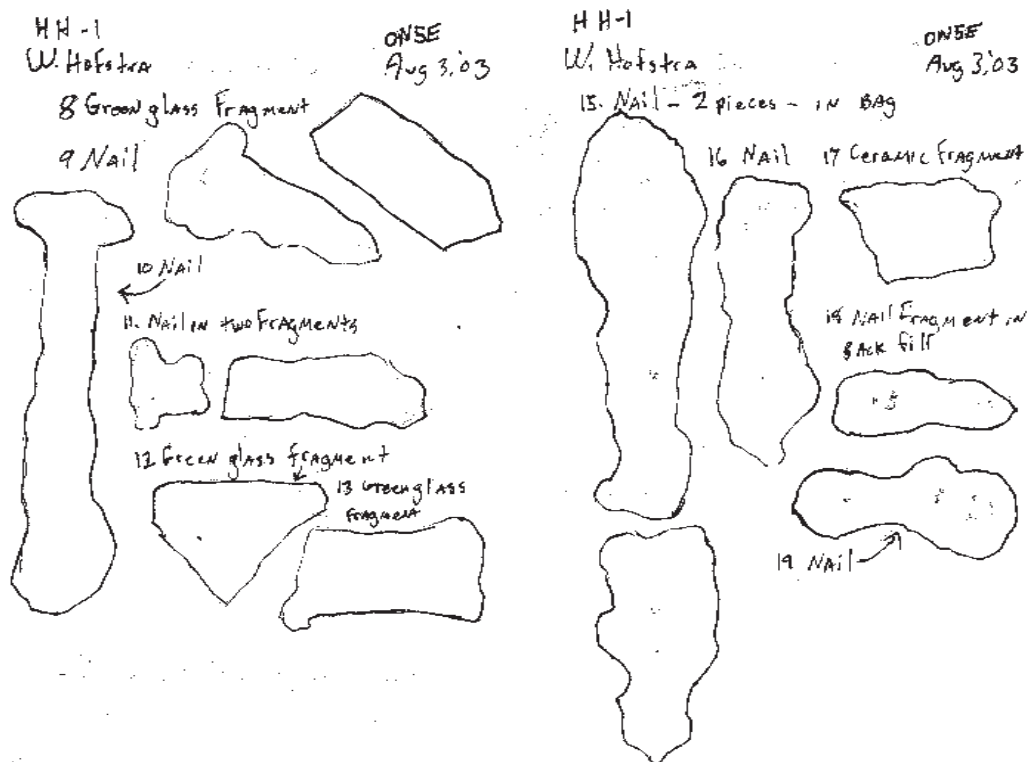 HH-1
W. Hofstra
ON5E
Aug 3,'03
8 Green glass Fragment
9 Nail
10 Nail
11. Nail in two Fragments
12 Green glass fragment
13 Green glass
Fragment
HH-1
W. Hofstra
ON5E
Aug 3,'03
15. Nail - 2 pieces - in BAG
16 Nail
17 Ceramic Fragment
18 Nail Fragment in
Back fill
19 Nail